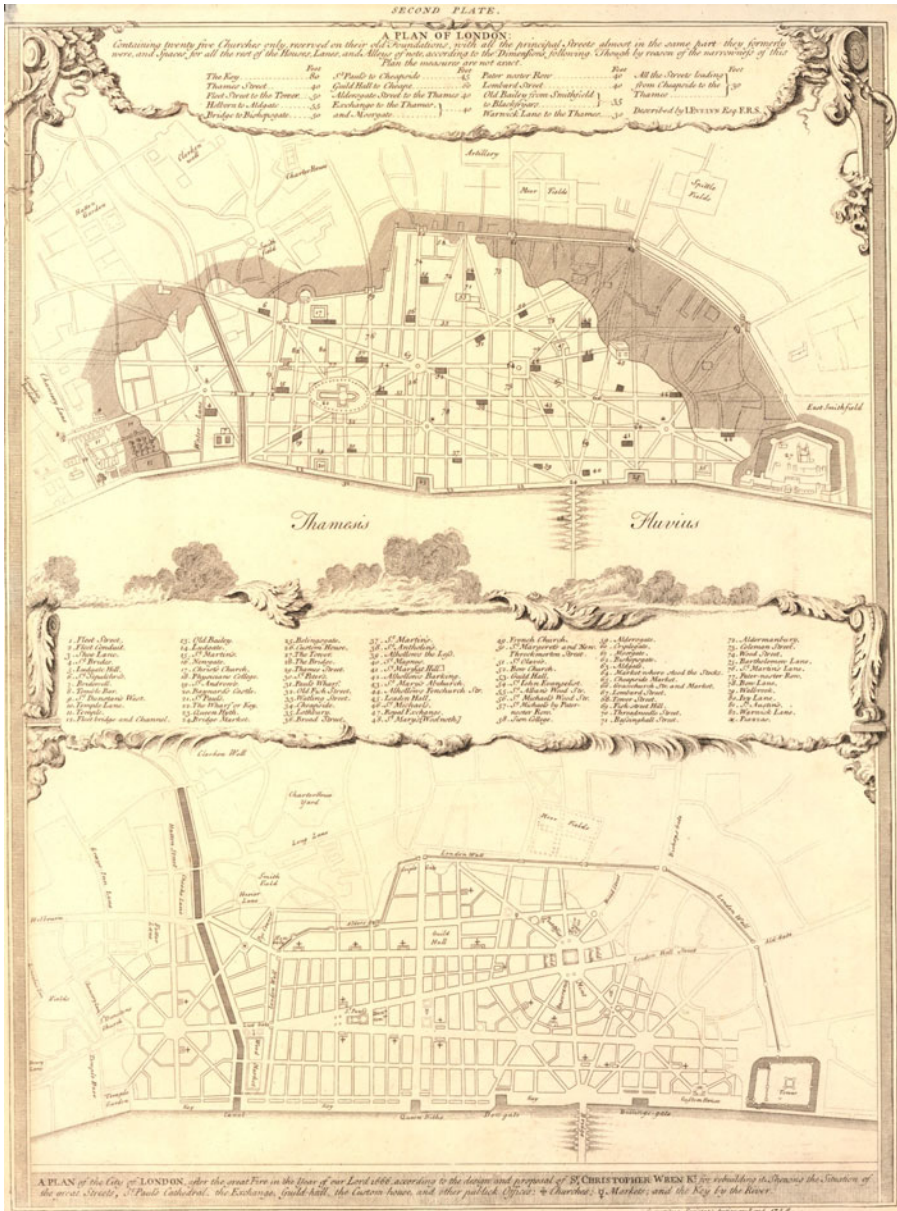 SECOND PLATE.
A PLAN OF LONDON:
Containing twenty five Churches only, reserved on their old Foundations, with all the principal Streets almost in the same part they formerly
were, and Spaces for all the rest of the Houses, Lanes, and Alleys of note, according to the Dimensions following. Though by reason of the narrowness of this
Plan the measures are not exact.
Feet
The Key 80
Thames Street 40
Fleet Street to the Tower 50
Holborn to Aldgate 55
Bridge to Bishopsgate 50
Feet
St. Pauls to Cheapside 45
Guild Hall to Cheape 60
Aldersgate Street to the Thames 40
Exchange to the Thames, and Moorgate 40
Pater noster Row 40
Lombard Street 40
Old Bailey from Smithfield to Blackfryars 35
Warwick Lane to the Thames 30
Feet
All the Streets leading from Cheapside to the Thames 30
Described by I. EVELYN Esq. F.R.S.
Hatton Garden
Clerken well
Charter House
Artillery
Moor Fields
Spittle Fields
Smith field
Chancery Lane
Water Lane
East Smithfield
Thamesis Fluvius
1. Fleet Street.
2. Fleet Conduit.
3. Shoe Lane.
4. St. Brides
5. Ludgate Hill.
6. St. Sepulchres.
7. Bridewell.
8. Temple Bar.
9. St. Dunstans West.
10. Temple Lane.
11. Temple.
12. Fleet bridge and Channel.
13. Old Bailey.
14. Ludgate.
15. St. Martins.
16. Newgate.
17. Christs Church.
18. Physicians College.
19. St. Andrews.
20. Baynards Castle.
21. St. Pauls.
22. The Wharf or Key.
23. Queen Hyth.
24. Bridge Market.
25. Belingsgate.
26. Custom House.
27. The Tower.
28. The Bridge.
29. Thames Street.
30. St. Peters.
31. Pauls Wharf.
32. Old Fish Street.
33. Watling Street.
34. Cheapside.
35. Lothbury.
36. Broad Street.
37. St. Martins.
38. St. Antholins.
39. Alhallows the Less.
40. St. Magnus.
42. Alhallows Barking.
43. St. Mary's Abchurch.
44. Alhallows Fenchurch Str.
45. Leaden Hall.
46. St. Michaels.
47. Royal Exchange.
48. St. Mary's [Woolnoth]
49. French Church.
50. St. Margarets and New.
Throckmorton Street.
51. St. Olaves.
52. Bow Church.
53. Guild Hall.
54. St. John Evangelist.
55. St. Albans Wood Str.
56. St. Michaels Wood Str.
57. St. Michaels by Pater-
noster Row.
58. Sion College.
59. Aldersgate.
60. Criplegate.
61. Moorgate.
62. Bishopsgate.
63. Aldgate.
64. Market where stood the Stocks.
65. Cheapside Market.
67. Lombard Street.
68. Tower Street.
69. Fish street Hill.
70. Threadneedle Street.
71. Basinghall Street.
72. Aldermanbury.
73. Coleman Street.
74. Wood Street.
75. Bartholomew Lane.
76. St. Martins Lane.
77. Pater-noster Row.
78. Bow Lane.
79. Wallbrook.
80. Ivy Lane.
81. St. Austins.
82. Warwick Lane.
Clerken Well
CharterHouse Yard
Long Lane
Moor Fields
London Wall
Smith Field
Hosier Lane
Holbourn
Guild Hall
London Wall
Ald Gate
Leaden Hall Street
St. Pauls
Fields
Temple Garden
Key
Canal
Key
Queen Hithe
Dowgate
Key
Bridge
Billings-gate
Custom House
Tower
A PLAN of the City of LONDON, after the great Fire in the Year of our Lord 1666, according to the design and proposal of Sr. CHRISTOPHER WREN Kt. for rebuilding it. Shewing the Situation of
the great Streets, St. Pauls Cathedral, the Exchange, Guild-hall, the Custom house, and other publick Offices; Churches; Markets; and the Key by the River.